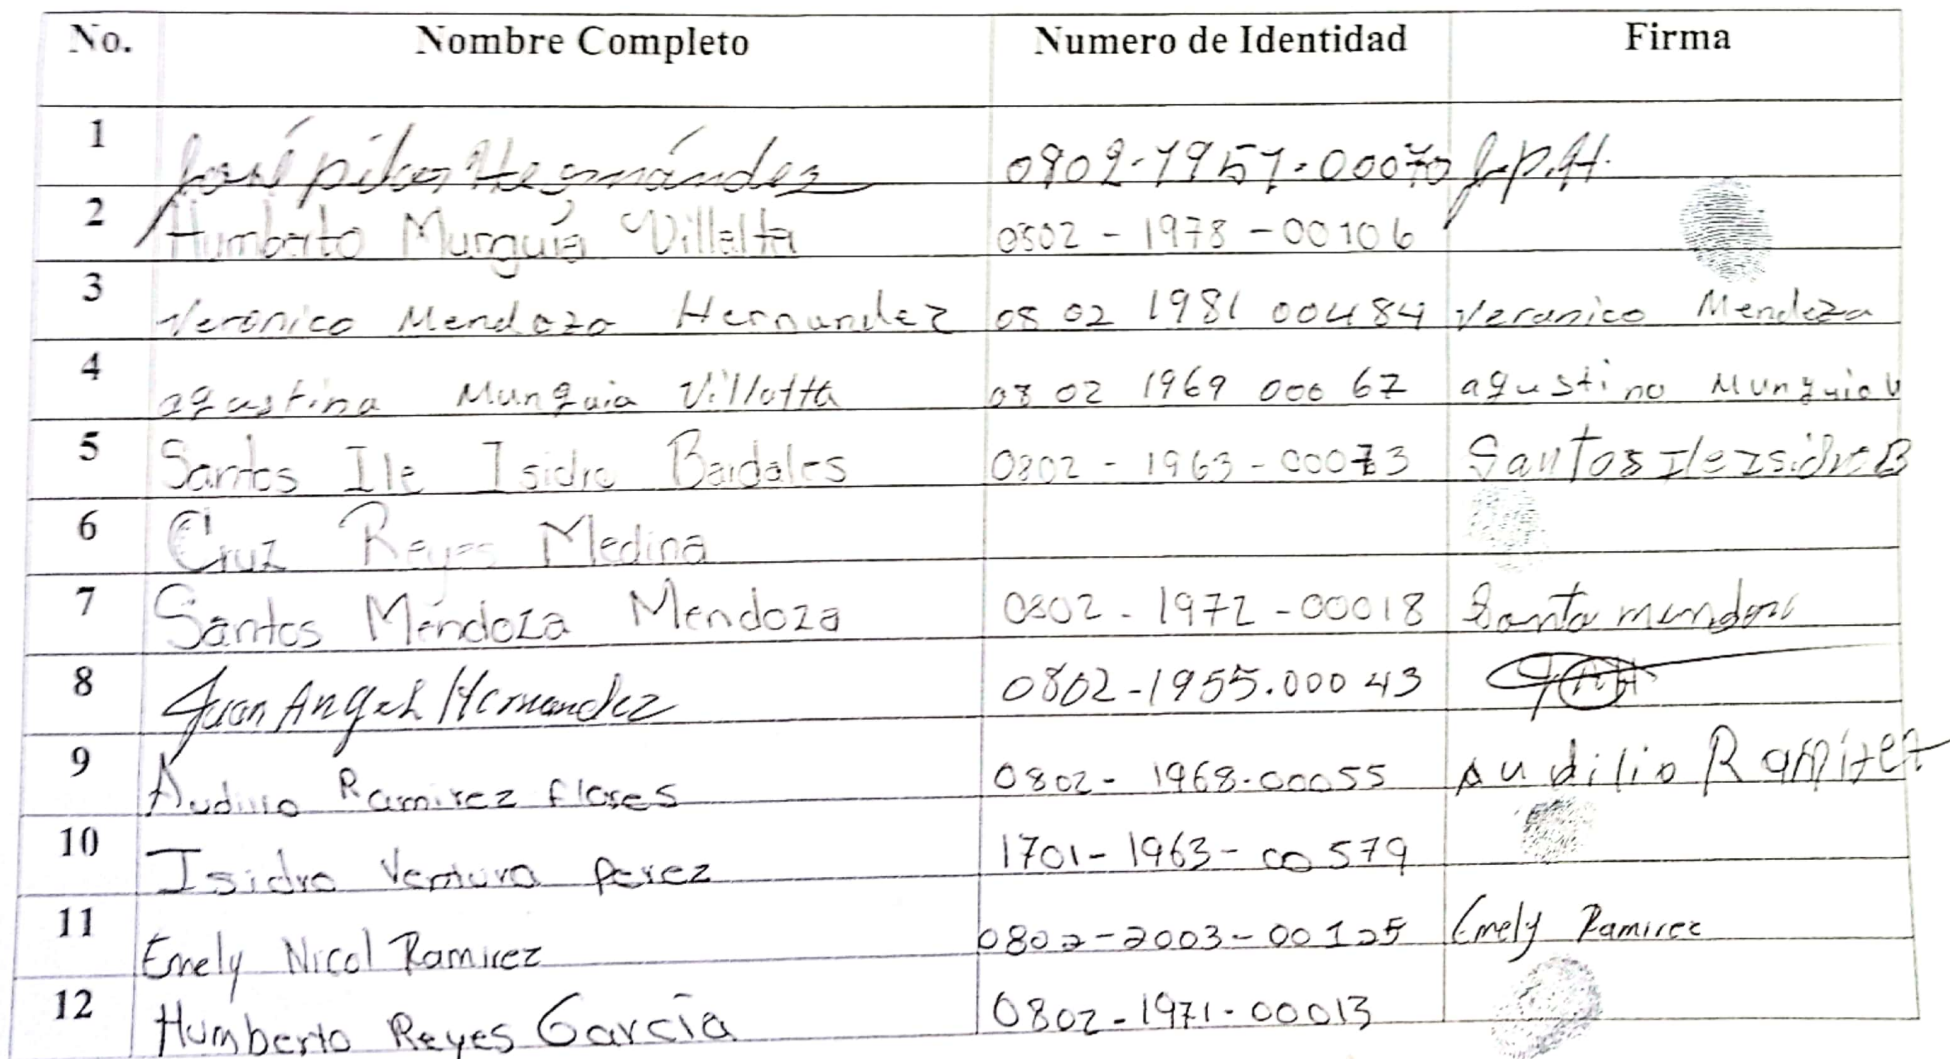 No. Nombre Completo Numero de Identidad Firma
1 José Hernández 0802-1957-00070 J.P.H.
2 Humberto Munguía Villalta 0802 - 1978 - 00106
3 Veronica Mendoza Hernandez 08 02 1981 00484 Veronica Mendoza
4 agustina Munguia Villatta 08 02 1969 000 67 agustina Munguia V
5 Santos Ile Isidro Bardales 0802 - 1963 - 00073 Santos Ile Isidro B
6 Cruz Reyes Medina
7 Santos Mendoza Mendoza 0802 - 1972 - 00018 Santo mendoza
8 Juan Angel Hernandez 0802-1955.000 43
9 Audilio Ramirez flores 0802- 1968-00055 Audilio Ramirez
10 Isidro Ventura perez 1701- 1963- 00579
11 Emely Nicol Ramirez 0802-2003-00125 Emely Ramirez
12 Humberto Reyes García 0802-1971-00013